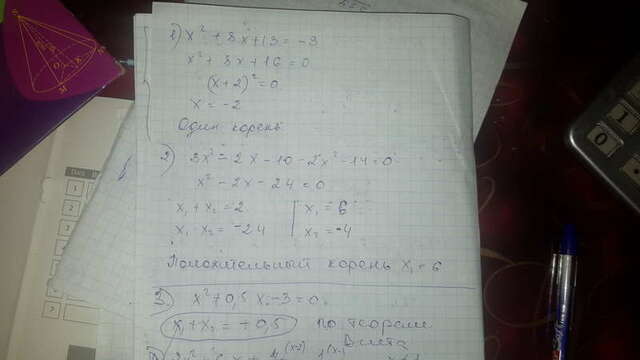 1) x² + 8x + 13 = -3
x² + 8x + 16 = 0
(x+2)² = 0
x = -2
Один корень
2) 3x² - 2x - 10 - 2x² - 14 = 0
x² - 2x - 24 = 0
x₁ + x₂ = 2 | x₁ = 6
x₁ · x₂ = -24 | x₂ = -4
Положительный корень x₁ = 6
3) x² + 0,5x - 3 = 0
x₁ + x₂ = -0,5 по теореме
Виета